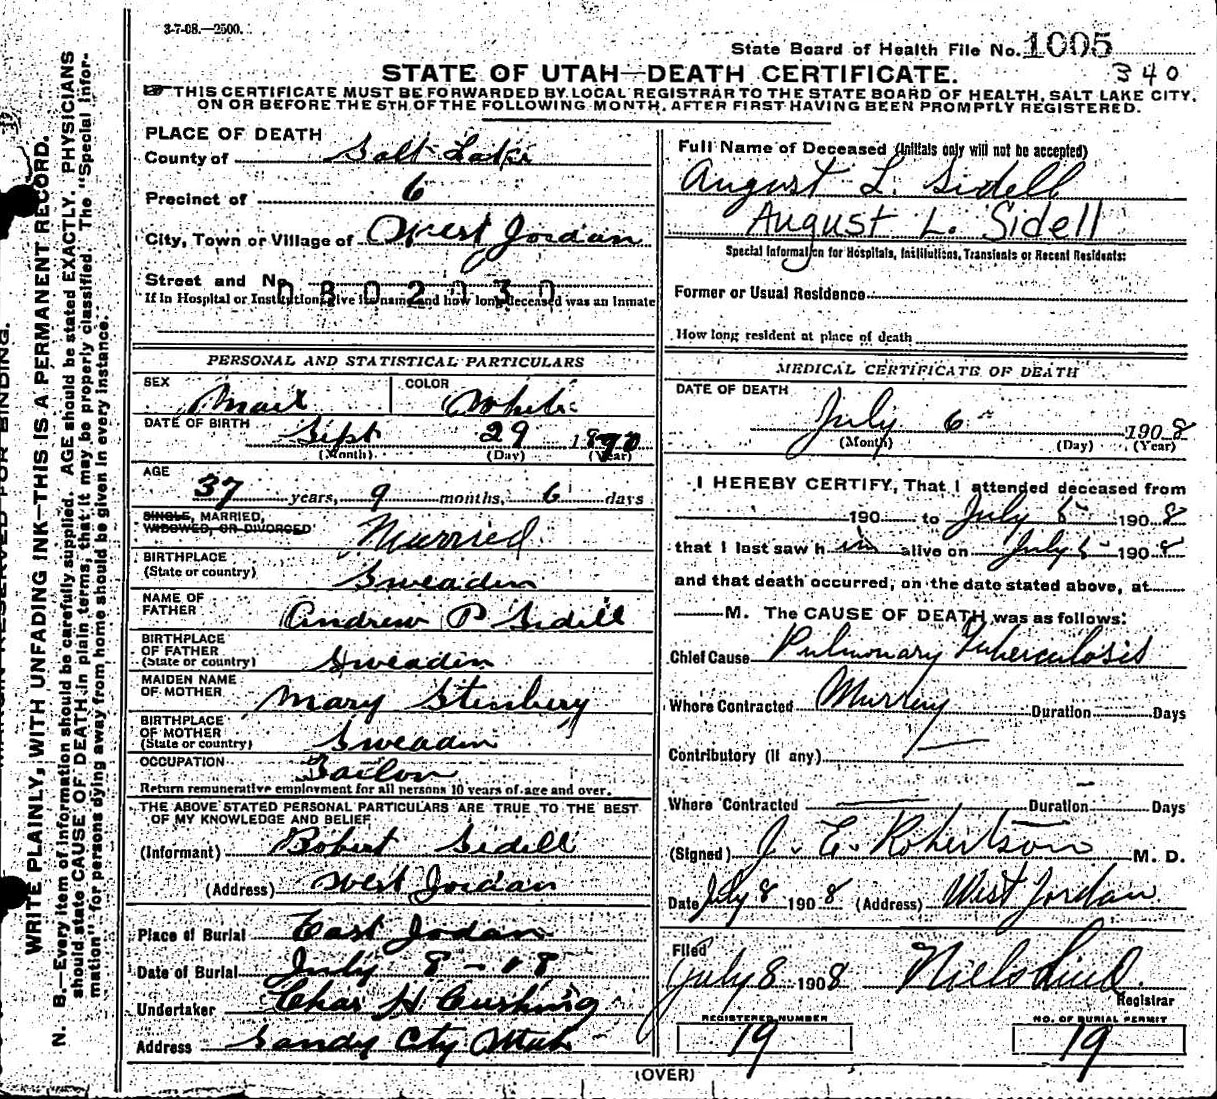 3-7-08.—2500.
State Board of Health File No. 1005
340
STATE OF UTAH—DEATH CERTIFICATE.
THIS CERTIFICATE MUST BE FORWARDED BY LOCAL REGISTRAR TO THE STATE BOARD OF HEALTH, SALT LAKE CITY,
ON OR BEFORE THE 5TH OF THE FOLLOWING MONTH, AFTER FIRST HAVING BEEN PROMPTLY REGISTERED.
PLACE OF DEATH
County of Salt Lake
Precinct of 6
City, Town or Village of West Jordan
Street and No.
If in Hospital or Institution, give its name and how long deceased was an inmate
PERSONAL AND STATISTICAL PARTICULARS
SEX Male COLOR White
DATE OF BIRTH Sept 29 1870
(Month) (Day) (Year)
AGE
37 years, 9 months, 6 days
SINGLE, MARRIED,
WIDOWED, OR DIVORCED Married
BIRTHPLACE
(State or country) Sweaden
NAME OF
FATHER Andrew P Sidell
BIRTHPLACE
OF FATHER
(State or country) Sweaden
MAIDEN NAME
OF MOTHER Mary Stenbery
BIRTHPLACE
OF MOTHER
(State or country) Sweaden
OCCUPATION Tailor
Return remunerative employment for all persons 10 years of age and over.
THE ABOVE STATED PERSONAL PARTICULARS ARE TRUE TO THE BEST
OF MY KNOWLEDGE AND BELIEF
(Informant) Robert Sidell
(Address) West Jordan
Place of Burial East Jordan
Date of Burial July 8-08
Undertaker Chas H Cushing
Address Sandy City Utah
Full Name of Deceased (Initials only will not be accepted)
August L. Sidell
August L. Sidell
Special Information for Hospitals, Institutions, Transients or Recent Residents:
Former or Usual Residence
How long resident at place of death
MEDICAL CERTIFICATE OF DEATH
DATE OF DEATH
July 6 1908
(Month) (Day) (Year)
I HEREBY CERTIFY, That I attended deceased from
190 to July 5 1908
that I last saw him alive on July 5 1908
and that death occurred, on the date stated above, at
M. The CAUSE OF DEATH was as follows:
Chief Cause Pulmonary Tuberculosis
Where Contracted Murray Duration Days
Contributory (if any)
Where Contracted Duration Days
(Signed) J. E. Robertson M. D.
Date July 8 1908 (Address) West Jordan
Filed
July 8 1908 Niels Lind
Registrar
REGISTERED NUMBER
19
NO. OF BURIAL PERMIT
19
(OVER)
WRITE PLAINLY, WITH UNFADING INK—THIS IS A PERMANENT RECORD.
N. B.—Every item of information should be carefully supplied. AGE should be stated EXACTLY. PHYSICIANS
should state CAUSE OF DEATH in plain terms, that it may be properly classified. The "Special Infor-
mation" for persons dying away from home should be given in every instance.